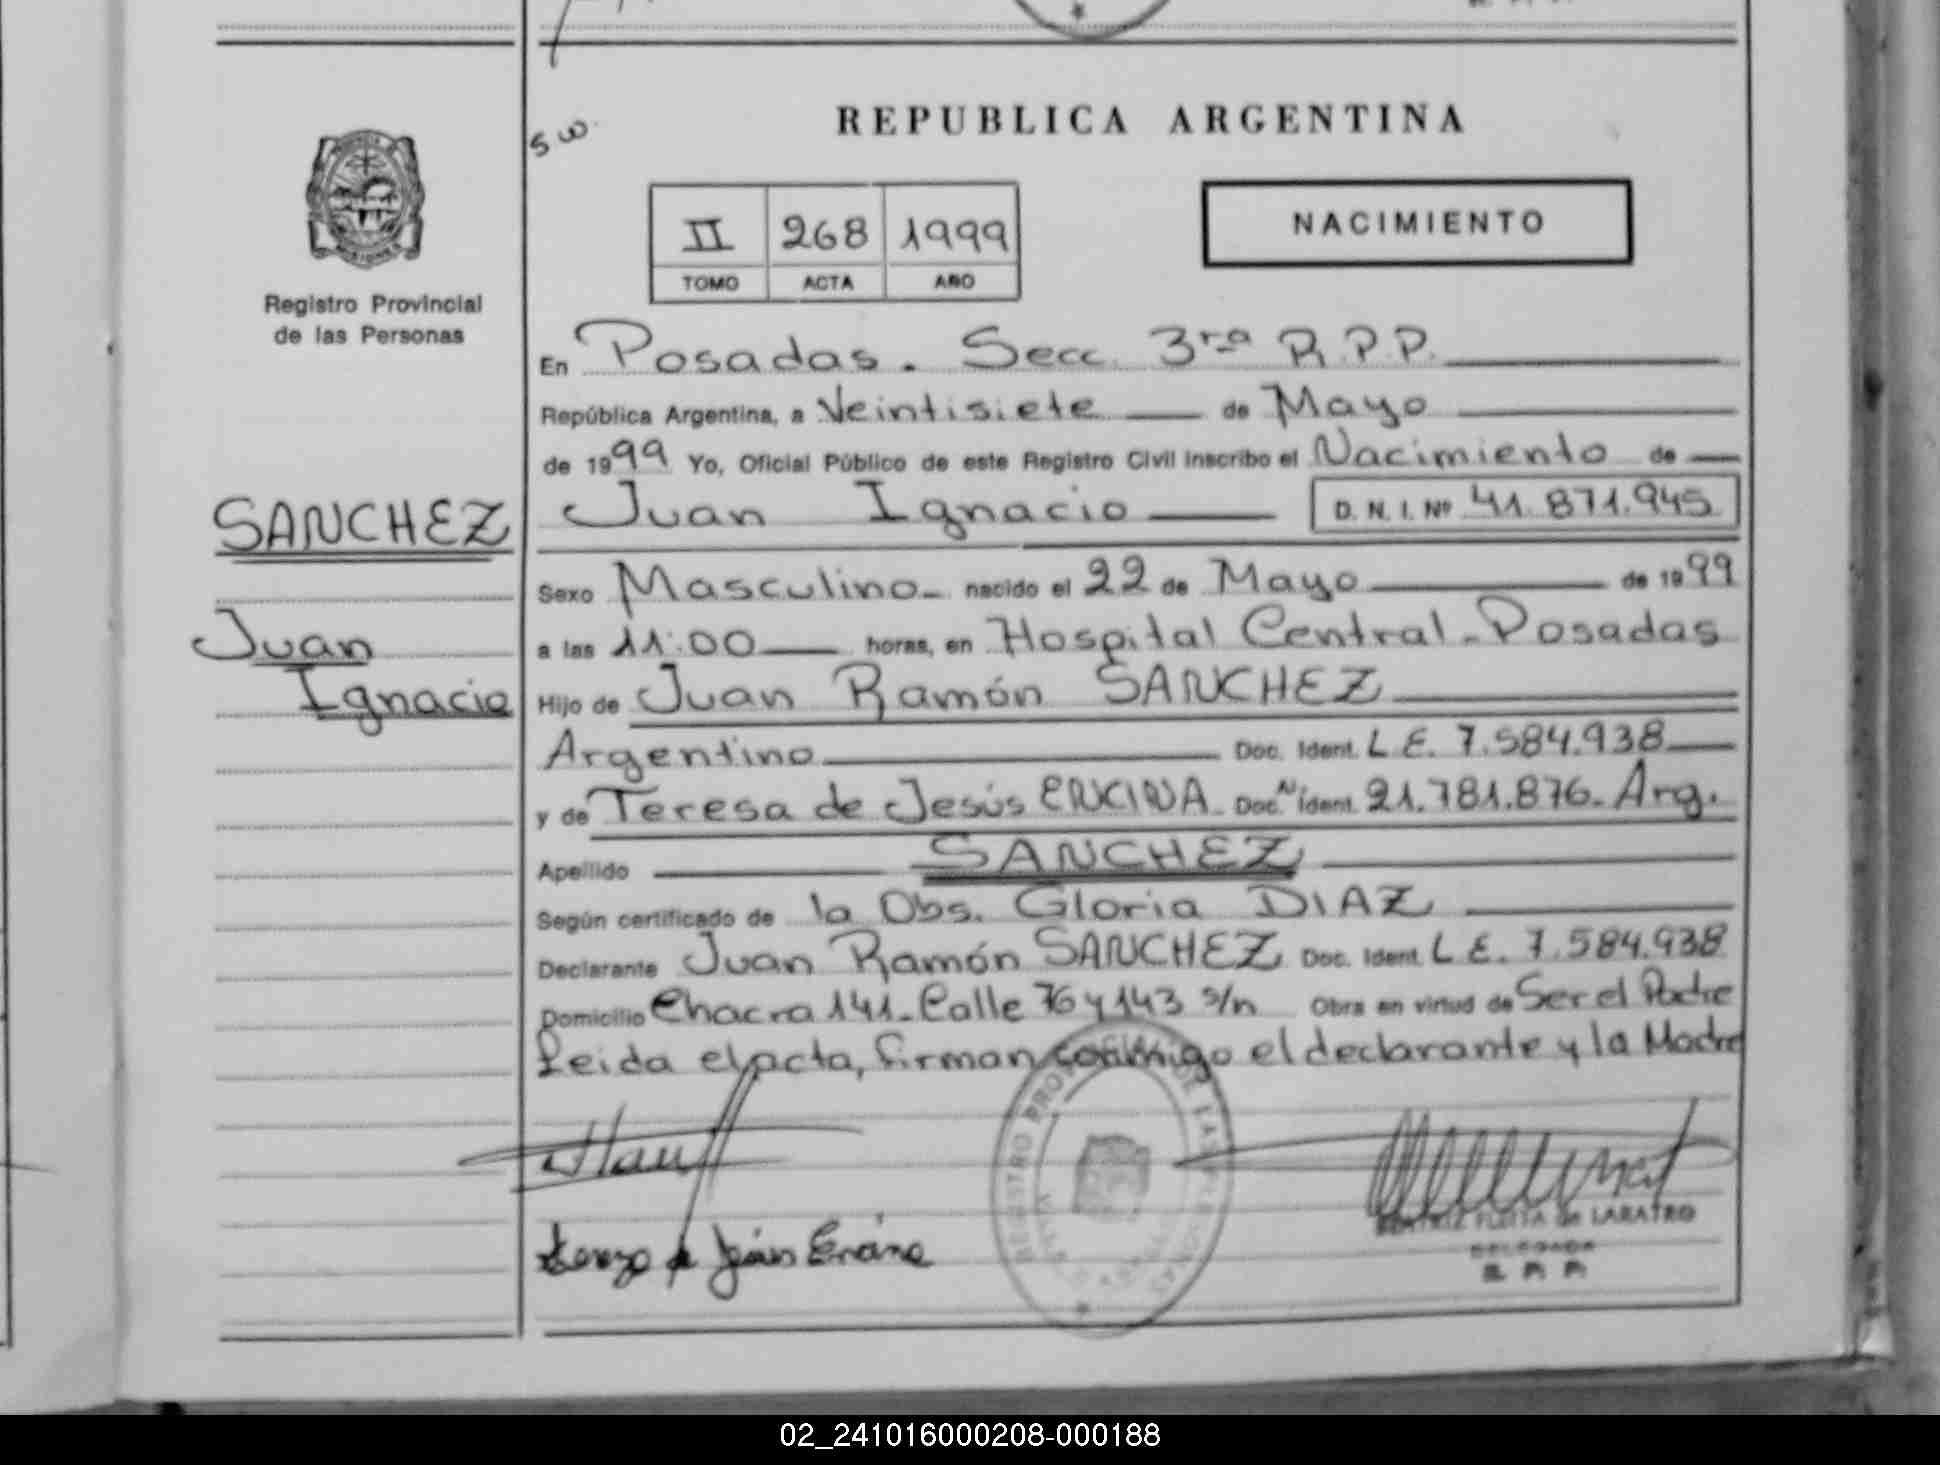 REPUBLICA ARGENTINA
NACIMIENTO
II 268 1999
TOMO ACTA AÑO
Registro Provincial
de las Personas
En Posadas. Secc. 3ra R.P.P.
República Argentina, a Veintisiete de Mayo
de 1999 Yo, Oficial Público de este Registro Civil inscribo el Nacimiento de
Juan Ignacio D. N. I. Nº 41.871.945
SANCHEZ
Juan
Ignacio
Sexo Masculino nacido el 22 de Mayo de 1999
a las 11:00 horas, en Hospital Central - Posadas
Hijo de Juan Ramón SANCHEZ
Argentino Doc. Ident. L.E. 7.584.938
y de Teresa de Jesús ENCINA Doc. Ident. 21.781.876 - Arg.
Apellido SANCHEZ
Según certificado de la Obs. Gloria DIAZ
Declarante Juan Ramón SANCHEZ Doc. Ident. L.E. 7.584.938
Domicilio Chacra 141 - Calle 76 y 143 s/n Obra en virtud de Ser el Padre
Leida el acta, firman conmigo el declarante y la Madre
REGISTRO PROVINCIAL DE LAS PERSONAS
Teresa de Jesús Encina
BEATRIZ FLEITA de LABATRO
DELEGADA
R. P. P.
02_241016000208-000188